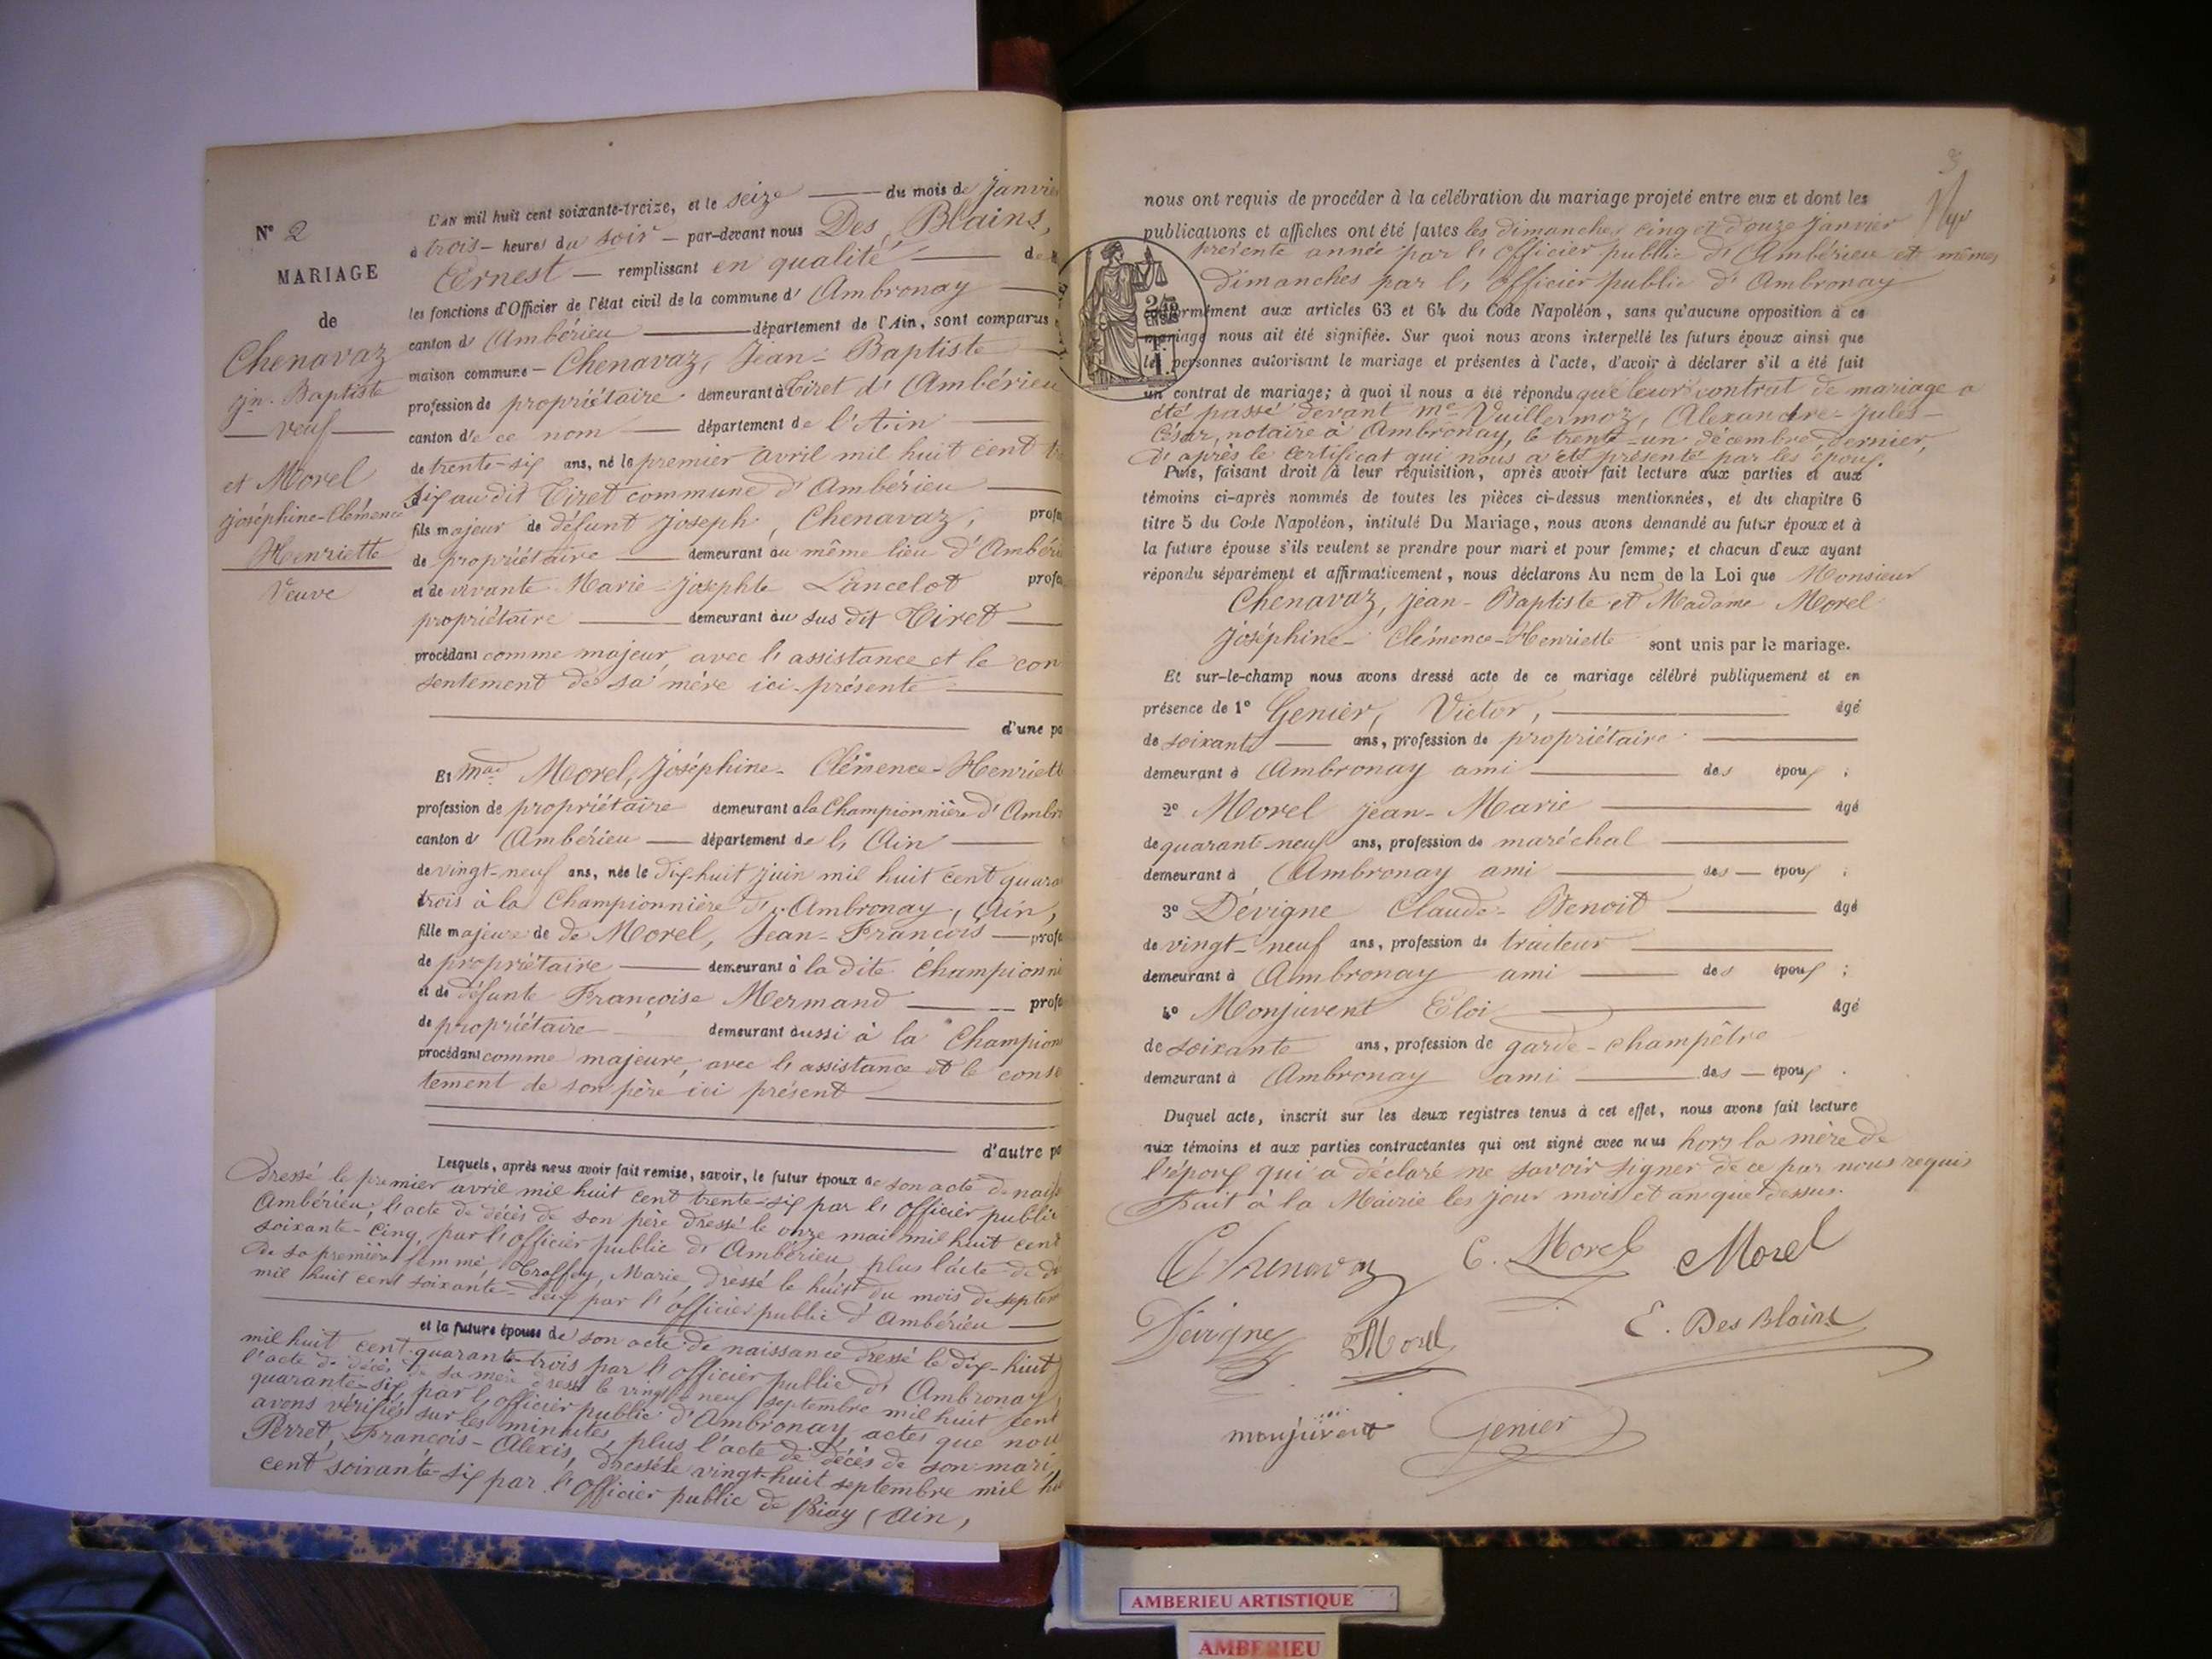 N° 2
MARIAGE
de
Chenavaz
Jn. Baptiste
veuf
et Morel
Joséphine-Clémence
Henriette
Veuve
L'AN mil huit cent soixante-treize, et le seize du mois de Janvie
à trois heures du soir par-devant nous Des Blains,
Ernest remplissant en qualité de
les fonctions d'Officier de l'état civil de la commune d' Ambronay
canton d' Ambérieu département de l'Ain, sont comparus
maison commune Chenavaz, Jean-Baptiste
profession de propriétaire demeurant à Tiret d' Ambérieu
canton de ce nom département de l'Ain
de trente-six ans, né le premier avril mil huit cent tr
six au dit Tiret commune d' Ambérieu
fils majeur de défunt Joseph, Chenavaz, profe
de propriétaire demeurant au même lieu d'Ambéri
et de vivante Marie-Josephte Lancelot profe
propriétaire demeurant au sus dit Tiret
procédant comme majeur, avec l'assistance et le con
sentement de sa mère ici présente
d'une pa
Et mad. Morel, Joséphine-Clémence-Henriett
profession de propriétaire demeurant à la Championnière d' Ambr
canton d' Ambérieu département de l'Ain
de vingt-neuf ans, née le dix-huit juin mil huit cent quara
trois à la Championnière d' Ambronay, (Ain,
fille majeure de de Morel, Jean-François profe
de propriétaire demeurant à la dite Championni
et de défunte Françoise Mermand profe
de propriétaire demeurant aussi à la Champion
procédant comme majeure, avec l'assistance et le conse
tement de son père ici présent
d'autre pa
Lesquels, après nous avoir fait remise, savoir, le futur époux de son acte de naiss
dressé le premier avril mil huit cent trente-six par l'officier public
Ambérieu, l'acte de décès de son père dressé le onze mai mil huit cent
soixante-cinq, par l'officier public d' Ambérieu, plus l'acte de dé
de sa première femme, Marie, dressé le huit du mois de septem
mil huit cent soixante-dix par l'officier public d' Ambérieu
et la future épouse de son acte de naissance dressé le dix-huit
mil huit cent quarante-trois par l'officier public d' Ambronay
l'acte de décès de sa mère dressé le vingt-neuf septembre mil huit cent
quarante-six, par l'officier public d'Ambronay, actes que nou
avons vérifiés sur les minutes, plus l'acte de décès de son mari
Perret, François-Alexis, dressé le vingt-huit septembre mil hu
cent soixante-six par l'officier public de (Ain,
3
nous ont requis de procéder à la célébration du mariage projeté entre eux et dont les
publications et affiches ont été faites les dimanches cinq et douze janvier
présente année par l'officier public d' Ambérieu et mêmes
dimanches par l'officier public d' Ambronay
formément aux articles 63 et 64 du Code Napoléon, sans qu'aucune opposition à ce
mariage nous ait été signifiée. Sur quoi nous avons interpellé les futurs époux ainsi que
les personnes autorisant le mariage et présentes à l'acte, d'avoir à déclarer s'il a été fait
un contrat de mariage; à quoi il nous a été répondu que leur contrat de mariage a
été passé devant me Vuillermoz, Alexandre-Jules-
César, notaire à Ambronay, le trente-un décembre dernier,
d'après le certificat qui nous a été présenté par les époux.
Puis, faisant droit à leur réquisition, après avoir fait lecture aux parties et aux
témoins ci-après nommés de toutes les pièces ci-dessus mentionnées, et du chapitre 6
titre 5 du Code Napoléon, intitulé Du Mariage, nous avons demandé au futur époux et à
la future épouse s'ils veulent se prendre pour mari et pour femme; et chacun d'eux ayant
répondu séparément et affirmativement, nous déclarons Au nom de la Loi que Monsieur
Chenavaz, Jean-Baptiste et Madame Morel
Joséphine-Clémence-Henriette sont unis par le mariage.
Et sur-le-champ nous avons dressé acte de ce mariage célébré publiquement et en
présence de 1° Genier, Victor, âgé
de soixante ans, profession de propriétaire
demeurant à Ambronay ami des époux ;
2° Morel Jean-Marie âgé
de quarante-neuf ans, profession de maréchal
demeurant à Ambronay ami des époux ;
3° Dévigne Claude-Benoit âgé
de vingt-neuf ans, profession de traiteur
demeurant à Ambronay ami des époux ;
4° Monjuvent Eloi âgé
de soixante ans, profession de garde-champêtre
demeurant à Ambronay ami des époux .
Duquel acte, inscrit sur les deux registres tenus à cet effet, nous avons fait lecture
aux témoins et aux parties contractantes qui ont signé avec nous hors la mère de
l'époux qui a déclaré ne savoir signer de ce par nous requis
Fait à la Mairie les jour mois et an que dessus.
Chenavaz C. Morel Morel
Dévigne Morel E. Des Blains
monjuvent Genier
AMBERIEU ARTISTIQUE
AMBERIEU